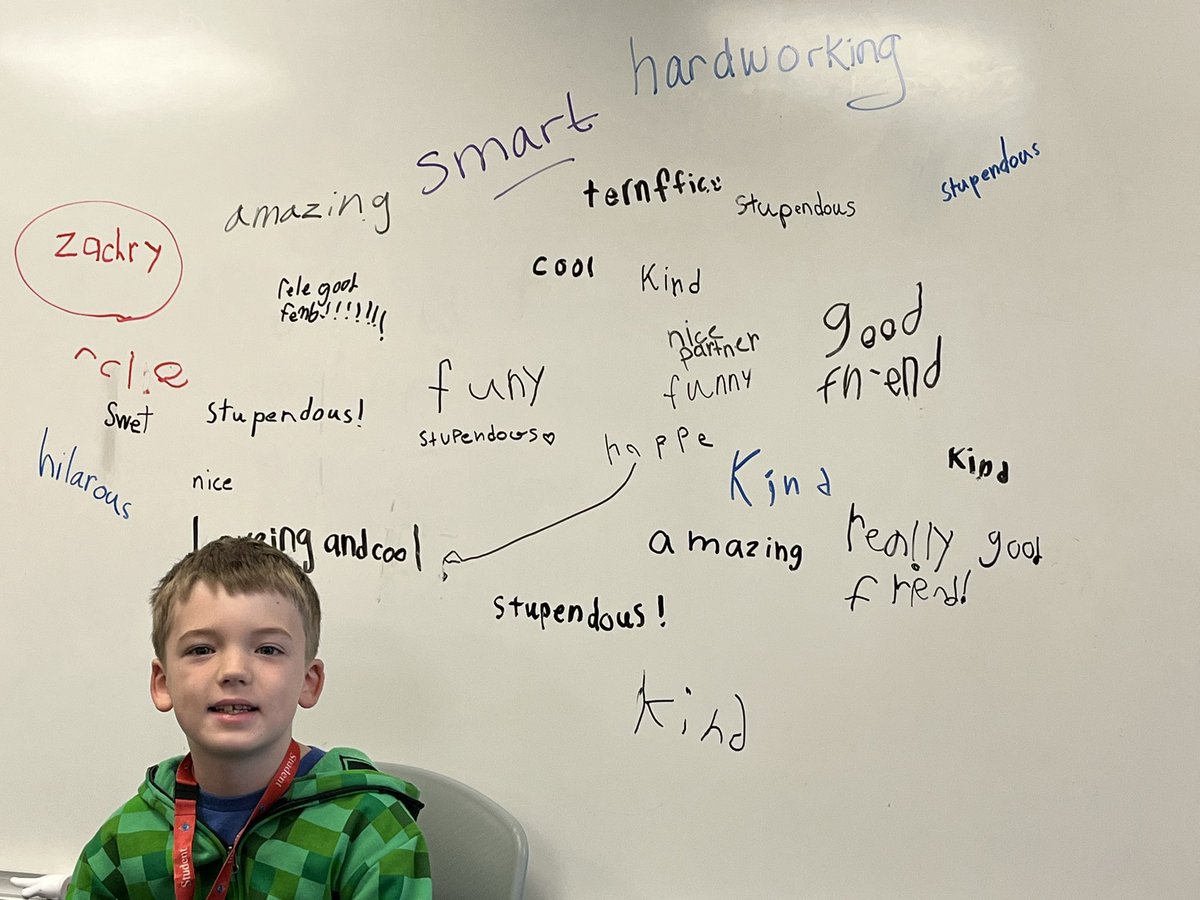 hardworking
smart
amazing
ternffic
stupendous
stupendous
zachry
cool
Kind
rele good
fenb!!!!!!!
nice
partner
funny
good
friend
funy
Swet
stupendous!
stupendous
happe
hilarous
nice
Kind
Kind
and cool
amazing
really good
friend!
stupendous!
Kind
Student
Student